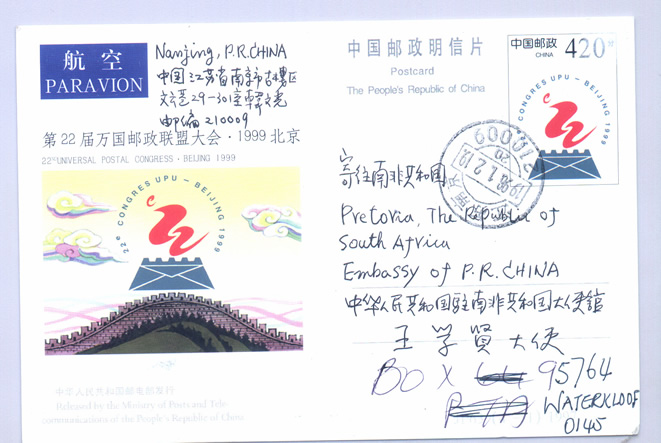 航空
PARAVION
Nanjing, P.R.CHINA
中国江苏省南京市
29-30
邮编210009
第22届万国邮政联盟大会·1999北京
22ND UNIVERSAL POSTAL CONGRESS·BEIJING 1999
22e CONGRES UPU - BEIJING 1999
中华人民共和国邮电部发行
Released by the Ministry of Posts and Tele
communications of the People's Republic of China
中国邮政明信片
Postcard
The People's Republic of China
中国邮政
CHINA
420分
CONGRES UPU - BEIJING 1999
210009
寄往南非共和国
Pretoria, The Republic of
South Africa
Embassy of P.R.CHINA
中华人民共和国驻南非共和国大使馆
王学贤大使
BOX 95764
WATERKLOOF
0145